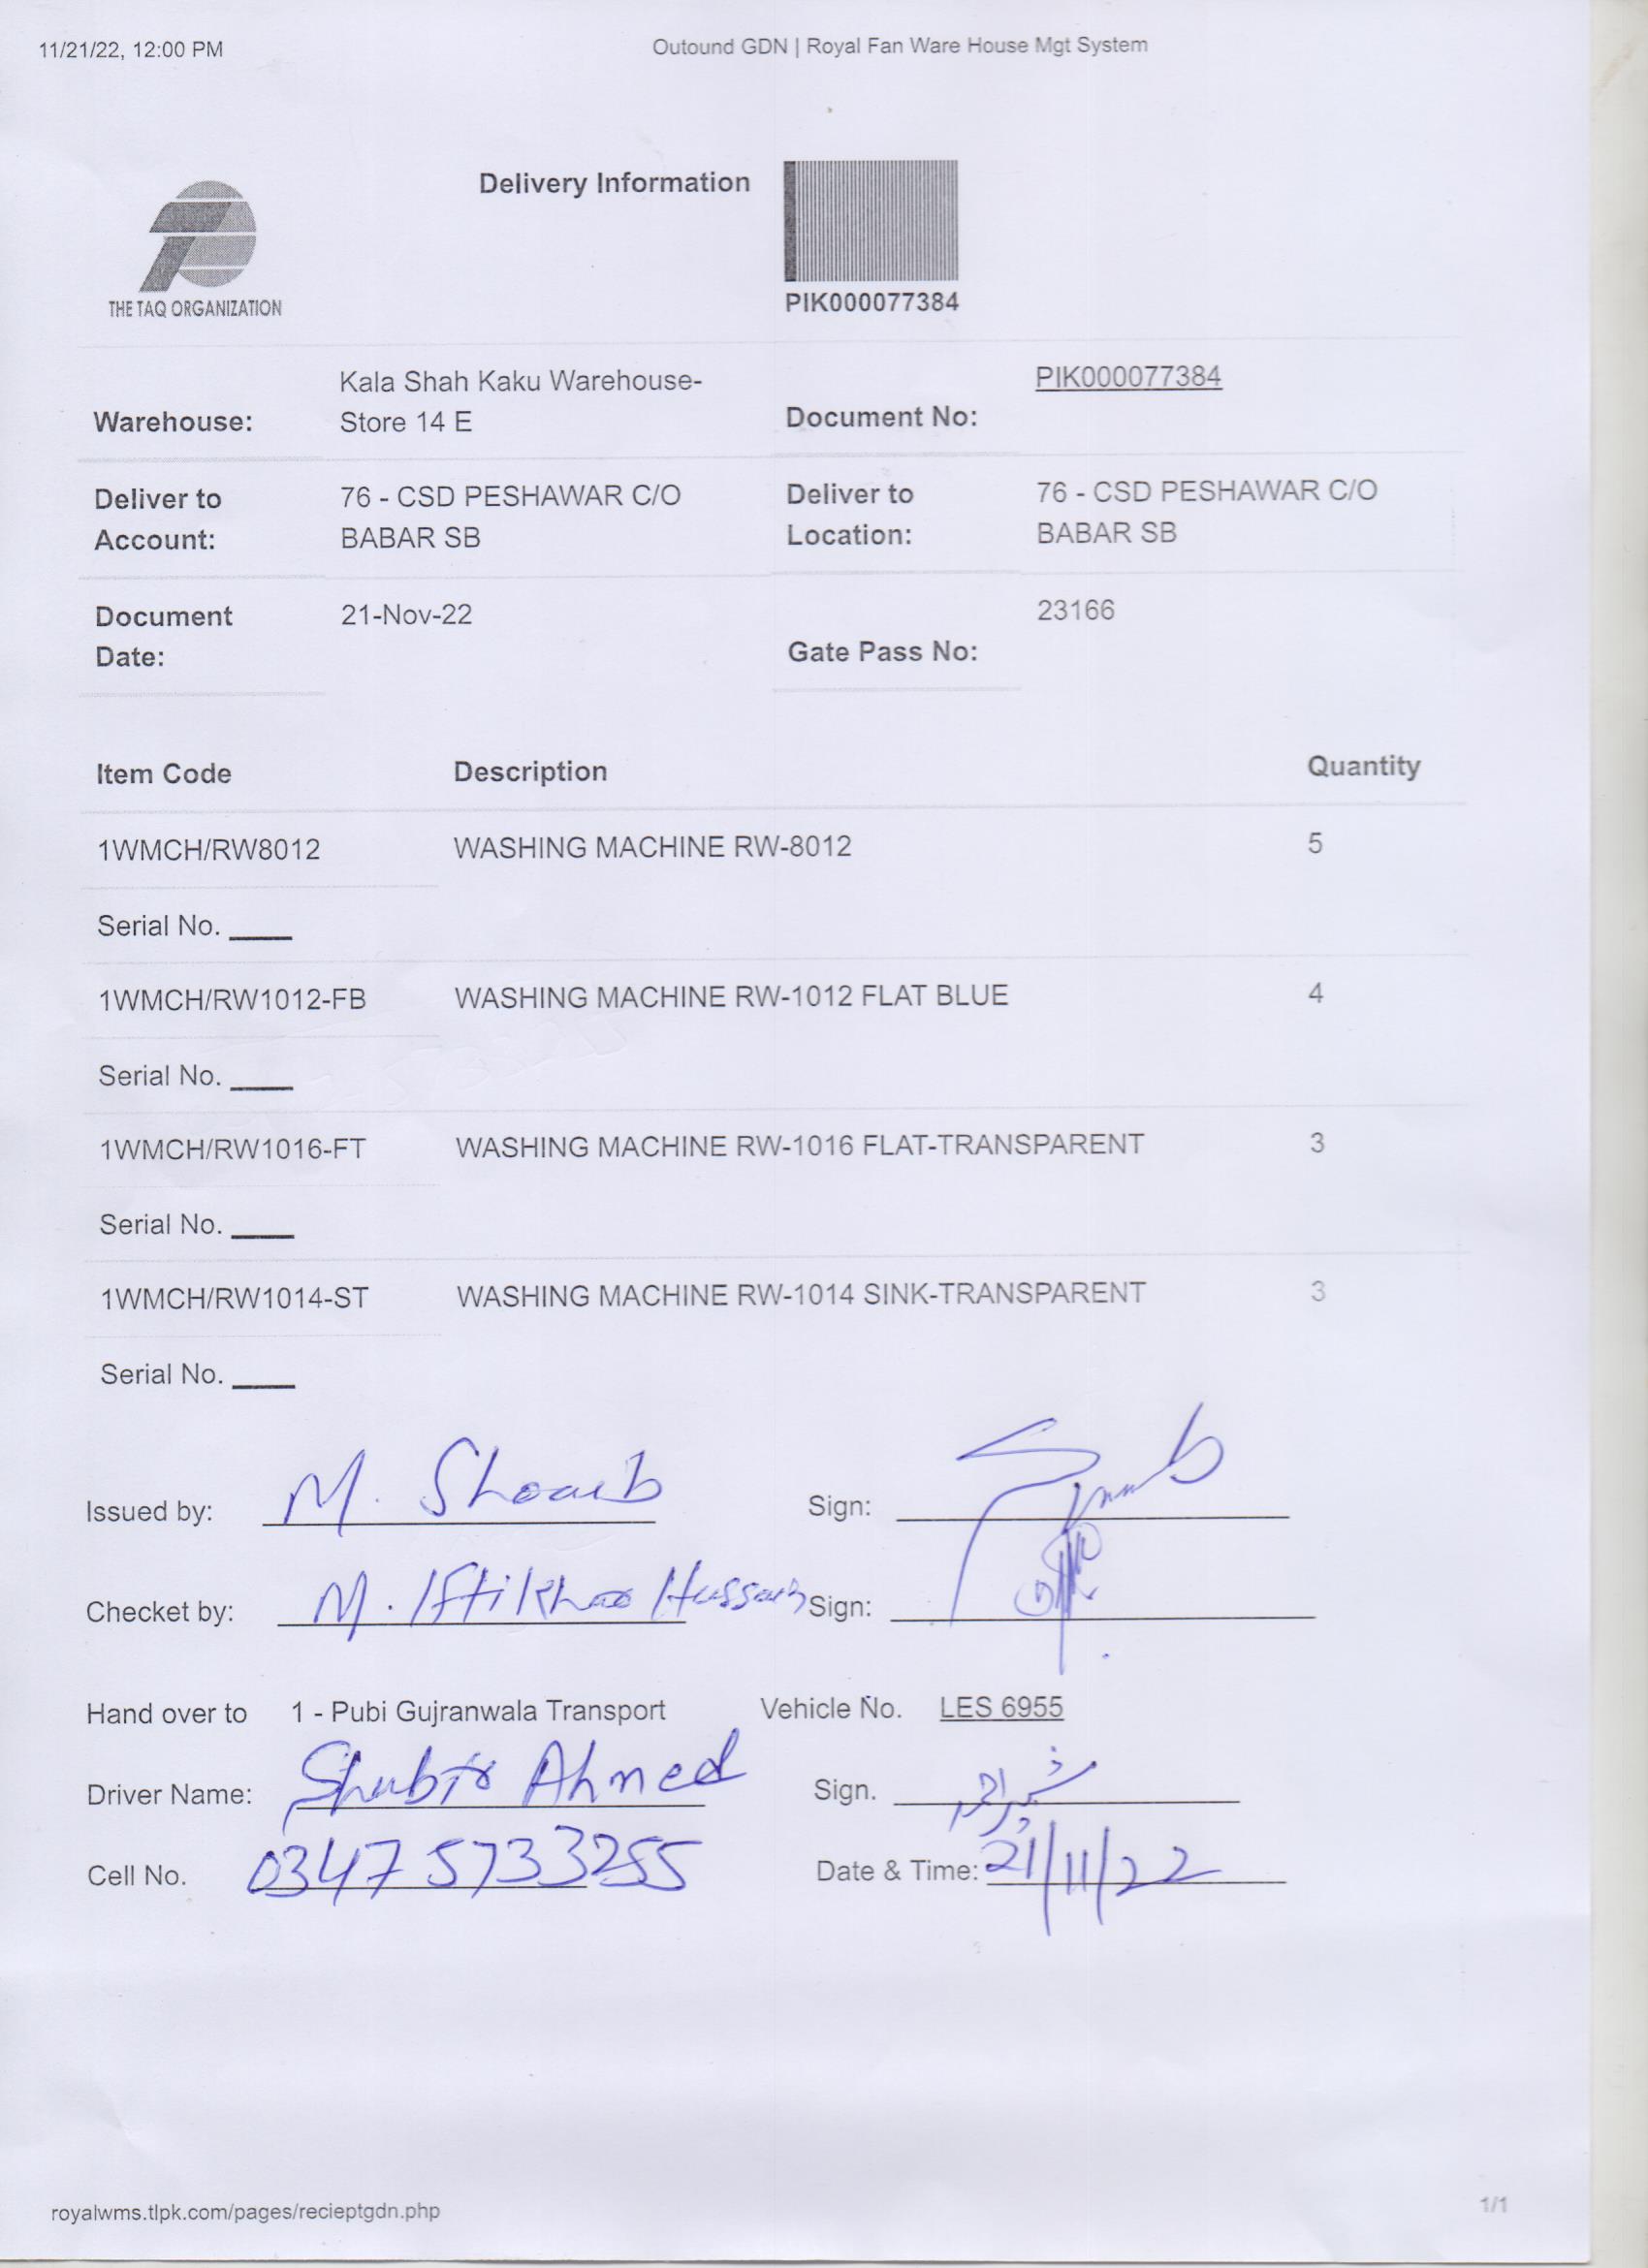 11/21/22, 12:00 PM Outound GDN | Royal Fan Ware House Mgt System
Delivery Information
THE TAQ ORGANIZATION
PIK000077384
Warehouse: Kala Shah Kaku Warehouse-
Store 14 E
Document No: PIK000077384
Deliver to
Account: 76 - CSD PESHAWAR C/O
BABAR SB
Deliver to
Location: 76 - CSD PESHAWAR C/O
BABAR SB
Document
Date: 21-Nov-22
Gate Pass No: 23166
Item Code Description Quantity
1WMCH/RW8012 WASHING MACHINE RW-8012 5
Serial No. ____
1WMCH/RW1012-FB WASHING MACHINE RW-1012 FLAT BLUE 4
Serial No. ____
1WMCH/RW1016-FT WASHING MACHINE RW-1016 FLAT-TRANSPARENT 3
Serial No. ____
1WMCH/RW1014-ST WASHING MACHINE RW-1014 SINK-TRANSPARENT 3
Serial No. ____
Issued by: M. Shoaib Sign:
Checket by: M. Iftikhar Hussain Sign:
Hand over to 1 - Pubi Gujranwala Transport Vehicle No. LES 6955
Driver Name: Shabir Ahmed Sign. شبیر احمد
Cell No. 0347 5733255 Date & Time: 21/11/22
royalwms.tlpk.com/pages/recieptgdn.php 1/1